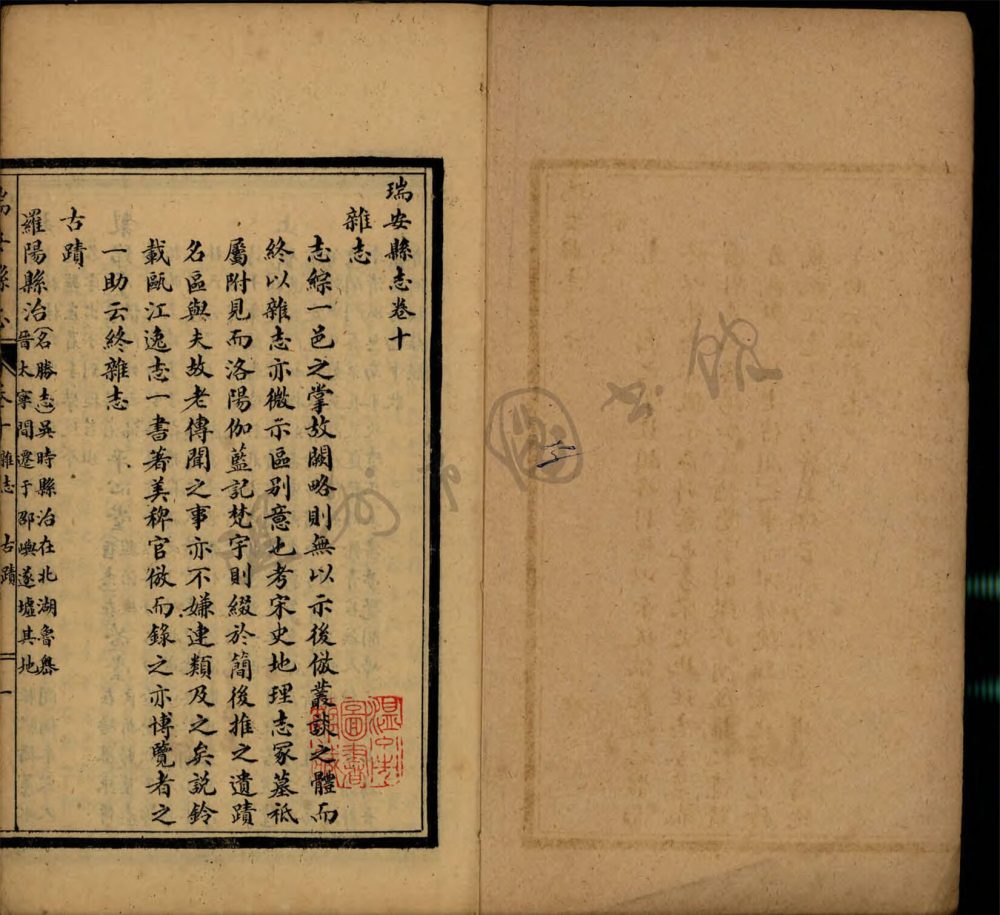 瑞安縣志卷十
雜志
志綜一邑之掌故闕略則無以示後倣叢談之體而
終以雜志亦微示區別意也考宋史地理志冢墓祗
屬附見而洛陽伽藍記梵宇則綴於簡後推之遺蹟
名區與夫故老傳聞之事亦不嫌連類及之矣說鈴
載甌江逸志一書著美稗官倣而錄之亦博覽者之
一助云終雜志
古蹟
羅陽縣治 名勝志吳時縣治在北湖魯嶴
晉太寧間遷于邵嶼遂墟其地
瑞安縣志 卷十 雜志 古蹟 一
溫州市圖書館藏
溫州市圖書館